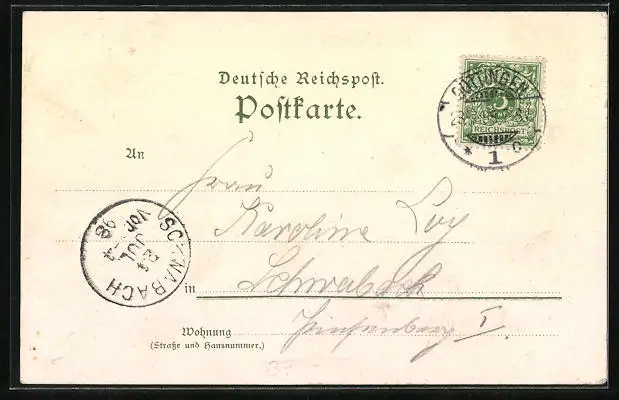 Deutsche Reichspost.
Postkarte.
GÖTTINGEN
1 c
5
REICHSPOST
An
Frau
Karoline Loy
SCHWABACH
24
JUL
Vor
98
in Schwabach
I.
Wohnung
(Straße und Hausnummer.)